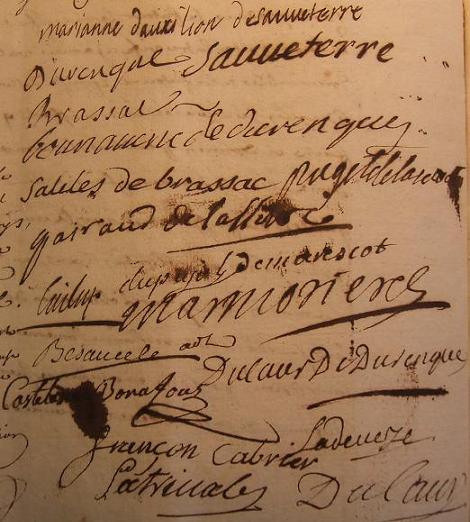 marianne dauxilion desauveterre
Durenque sauveterre
Brassac
bonnavenc de durenque
saliles de brassac puget
gairaud
dupuy demarescot
marmorieres
Besaucele
Dulaur De Durenque
Castelet Bonafous
françon Cabrier Ladeveze
Latreuale Dulaur